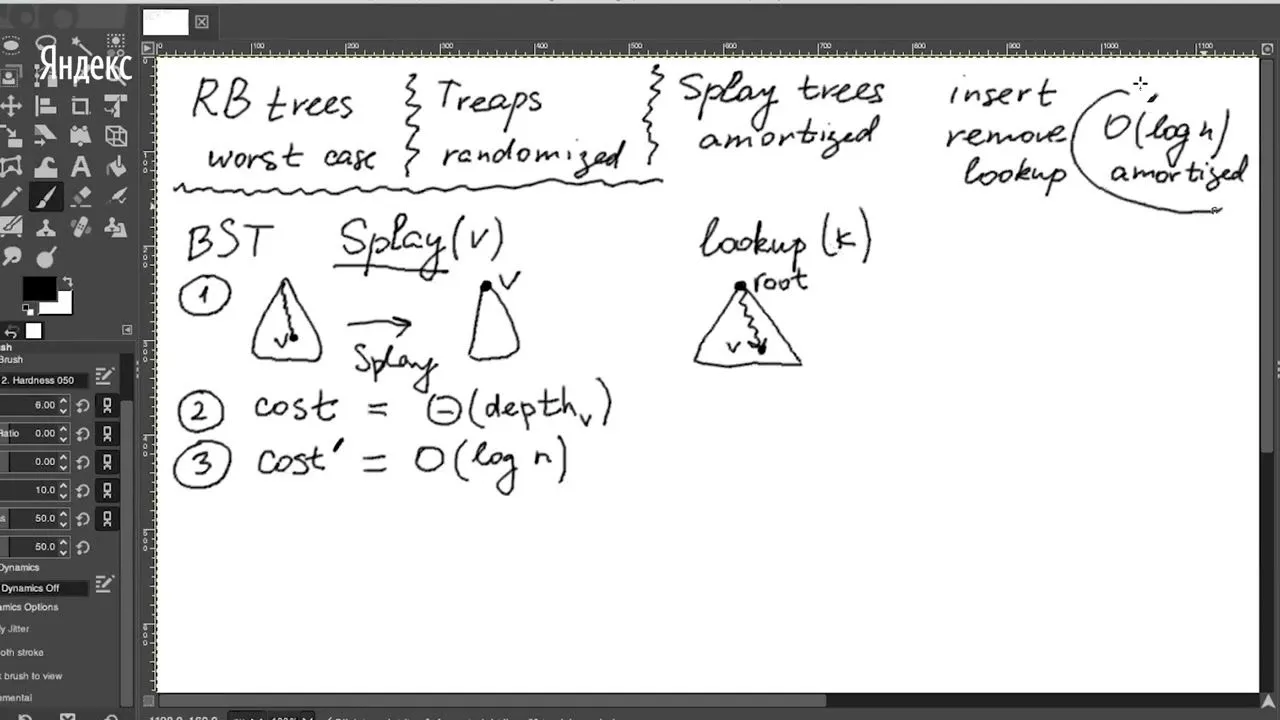 Яндекс
0 100 200 300 400 500 600 700 800 900 1000 1100
RB trees
worst case
Treaps
randomized
Splay trees
amortized
insert
remove
lookup
O(log n)
amortized
BST Splay(v)
lookup(k)
1
v
Splay
v
root
v
2 cost = Θ(depthᵥ)
3 cost' = O(log n)
Brush
2. Hardness 050
6.00
Ratio 0.00
0.00
10.0
50.0
50.0
Dynamics
Dynamics Off
amics Options
y Jitter
oth stroke
k brush to view
mental